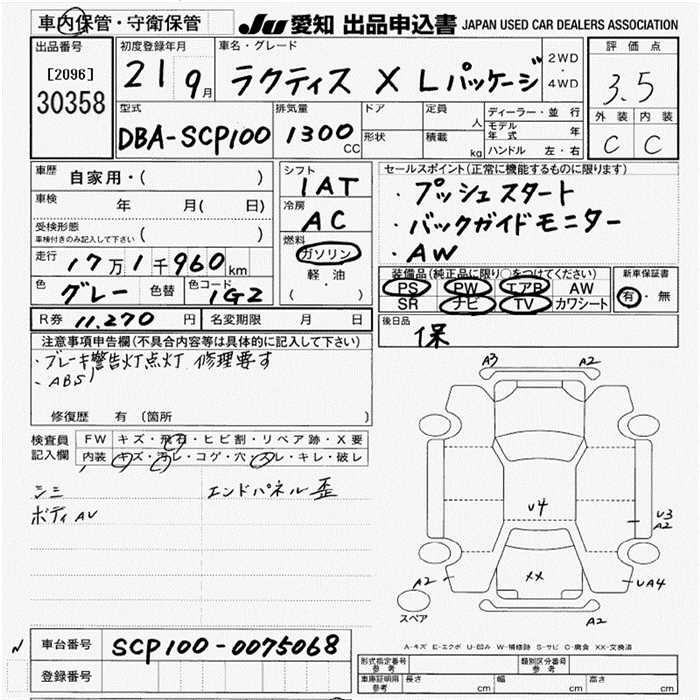 車内保管・守衛保管
JU 愛知 出品申込書 JAPAN USED CAR DEALERS ASSOCIATION
出品番号
[2096]
30358
初度登録年月
21 9月
車名・グレード
ラクティス X Lパッケージ
2WD
・
4WD
評価点
3.5
外装 内装
C C
型式
DBA-SCP100
排気量
1300
CC
ドア
形状
定員
人
積載
kg
ディーラー・並行
モデル年式 年
ハンドル 左・右
車歴 自家用・( )
車検 年 月( 日)
受検形態
車検付きのみ記入して下さい ( )
走行 17万1千960km
色 グレー 色替 色コード 1G2
シフト
1AT
冷房
AC
燃料
ガソリン
軽・油
( )
セールスポイント(正常に機能するものに限ります)
・プッシュスタート
・バックガイドモニター
・AW
装備品(純正品に限り○をつけてください)
PS PW エアB AW
SR ナビ TV カワシート
新車保証書
有・無
R券 11,270 円 名変期限 月 日
後日品
保
注意事項申告欄(不具合内容等は具体的に記入して下さい)
・ブレーキ警告灯点灯 修理要す
・ABS
修復歴 有 (箇所 )
検査員
記入欄
FW キズ・飛石・ヒビ割・リペア跡・X要
内装 キズ・汚レ・コゲ・穴・スレ・キレ・破レ
シミ エンドパネル歪
ボディAU
A3 A2
U4
U3
A2
XX
A2 UA4
スペア
A2
A-キズ E-エクボ U-凹み W-補修跡 S-サビ C-腐食 XX-交換済
車台番号 SCP100-0075068
登録番号
形式指定番号
参考
類別区分番号
参考
車庫証明用
参考
長さ cm 幅 cm 高さ cm